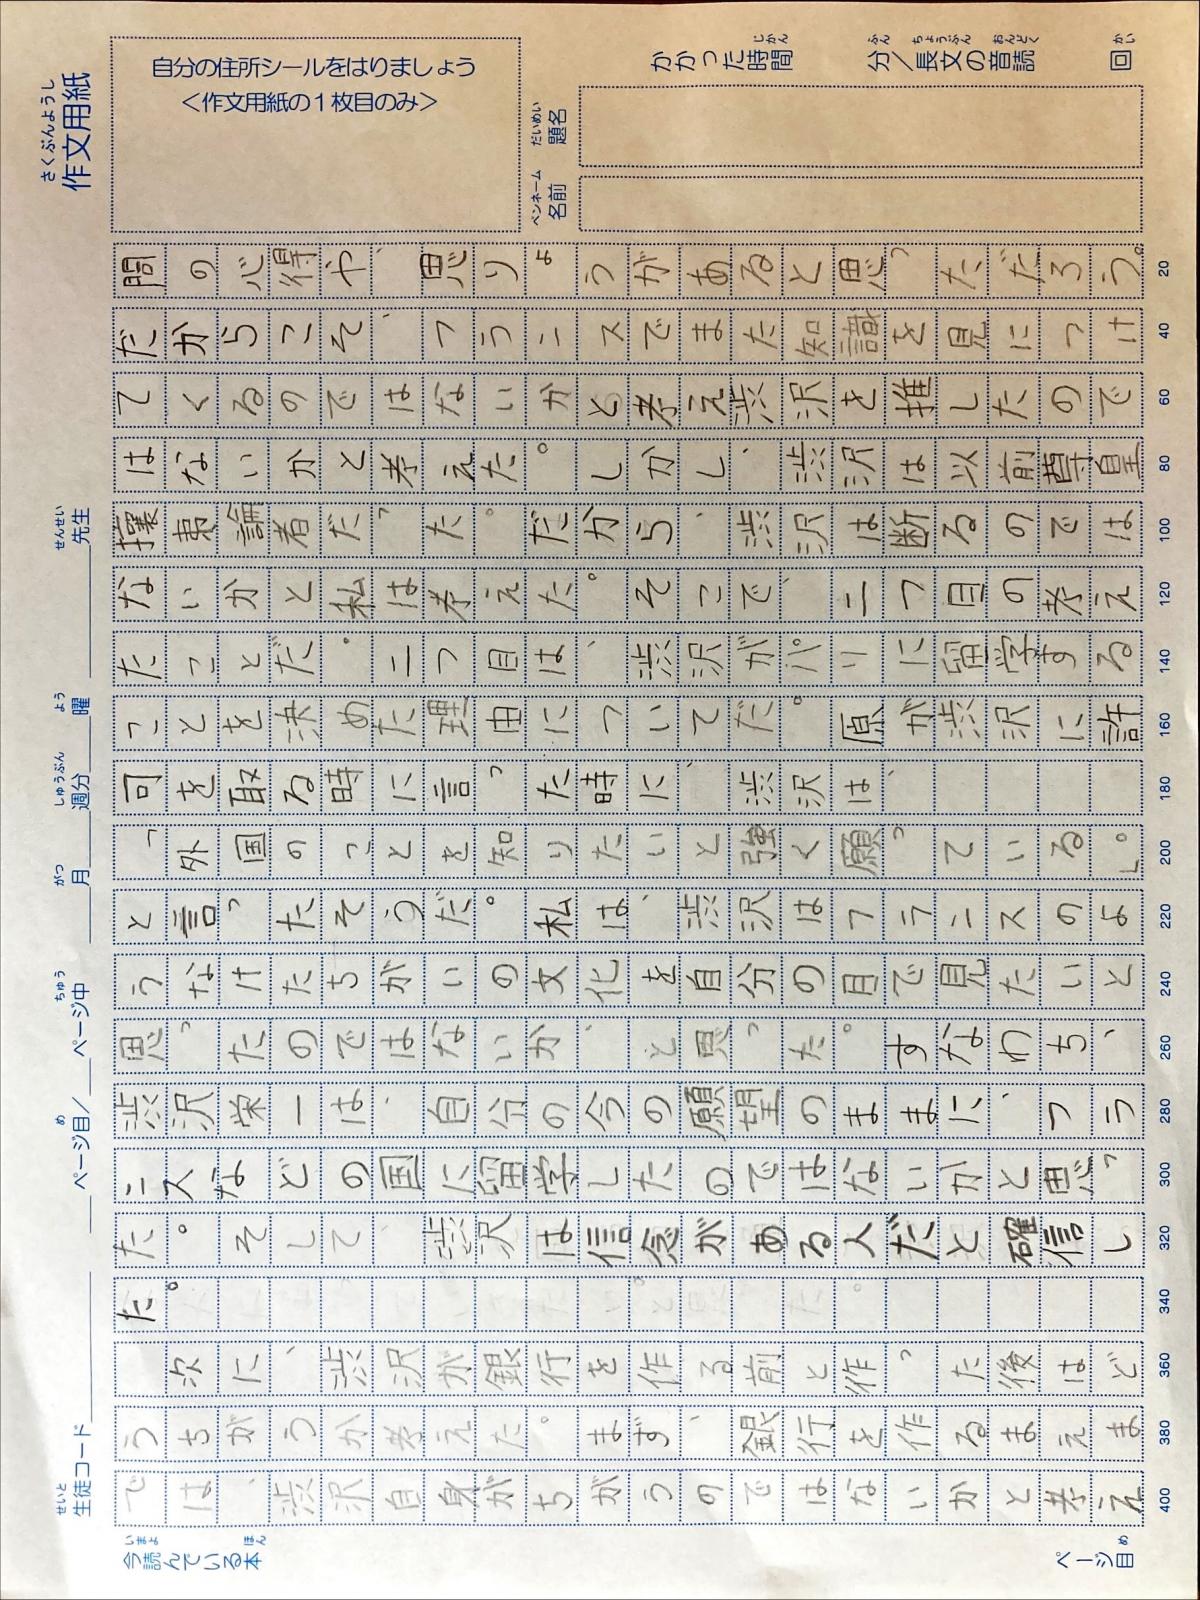 作文用紙
さくぶんようし
自分の住所シールをはりましょう
＜作文用紙の1枚目のみ＞
かかった時間 分／長文の音読 回
じかん ふん ちょうぶん おんどく かい
題名
だいめい
名前
ペンネーム
生徒コード ページ目／ ページ中 月 週分 曜 先生
せいと め ちゅう がつ しゅうぶん よう せんせい
問の心得や、思りようがあると思っただろう。
20
だからこそ、フランスでまた知識を見につけ
40
てくるのではないかと考え渋沢を推したので
60
はないかと考えた。しかし、渋沢は以前尊皇
80
攘夷論者だった。だから、渋沢は断るのでは
100
ないかと私は考えた。そこで、二つ目の考え
120
たことだ。二つ目は、渋沢がパリに留学する
140
ことを決めた理由についてだ。原が渋沢に許
160
可を取る時に言った時に、渋沢は、
180
「外国のことを知りたいと強く願っている。」
200
と言ったそうだ。私は、渋沢はフランスのよ
220
うなけたちがいの文化を自分の目で見たいと
240
思ったのではないか、と思った。すなわち、
260
渋沢栄一は、自分の今の願望のままに、フラ
280
ンスなどの国に留学したのではないかと思っ
300
た。そして、渋沢は信念がある人だと確信し
320
た。
340
次に、渋沢が銀行を作る前と作った後はど
360
うちがうか考えた。まず、銀行を作るまえま
380
では、渋沢自身がちがうのではないかと考え
400
今読んでいる本
いまよ ほん
ページ目
め